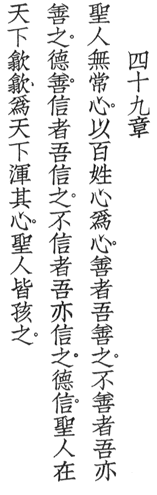 四十九章
聖人無常心。以百姓心爲心。善者吾善之。不善者吾亦
善之。德善。信者吾信之。不信者吾亦信之。德信。聖人在
天下歙歙、爲天下渾其心。聖人皆孩之。